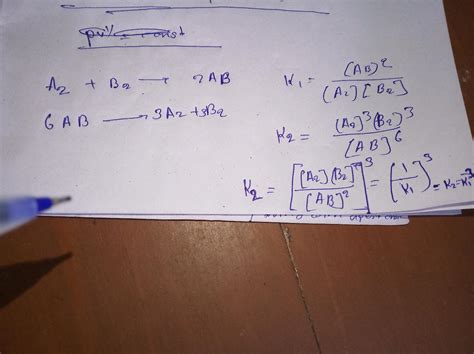 A₂ + B₂ ⟶ 2AB
K₁ = [AB]² / [A₂][B₂]
6AB ⟶ 3A₂ + 3B₂
K₂ = [A₂]³[B₂]³ / [AB]⁶
K₂ = [[A₂][B₂] / [AB]²]³ = (1/K₁)³ = K₂ = K⁻³